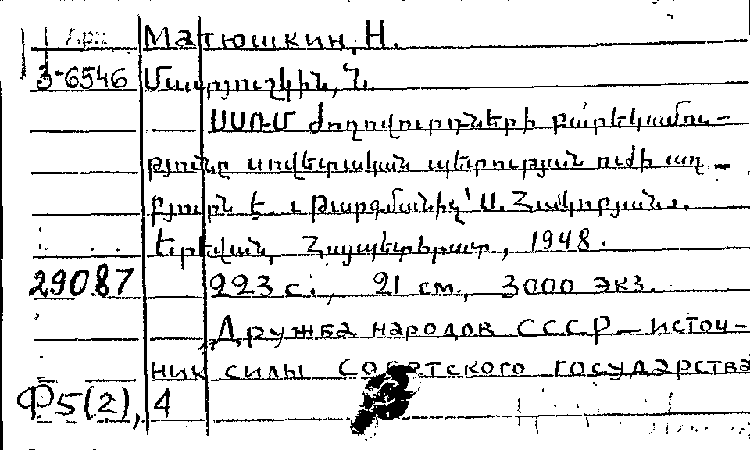 Арм Матюшкин, Н.
3-6546 Մատյուշկին, Ն.
ՍՍՌՄ ժողովուրդների բարեկամու-
թյունը սովետական պետության ուժի աղ-
բյուրն է. Թարգմանիչ՝ Ս. Հակոբյան.
Երևան, Հայպետհրատ, 1948.
29087 223 с., 21 см., 3000 экз.
Дружба народов СССР — источ-
ник силы Советского государства
Ф5(2), 4